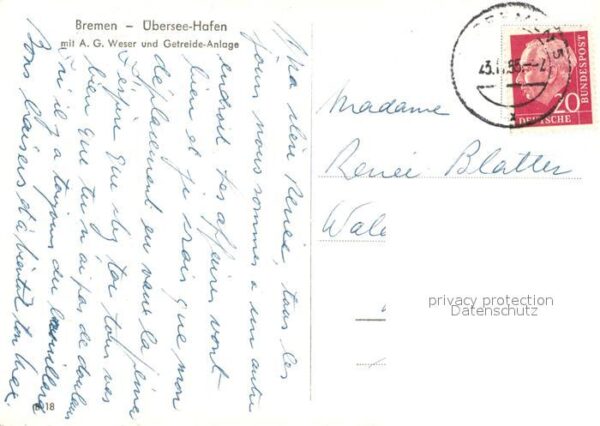 Bremen – Übersee-Hafen
mit A. G. Weser und Getreide-Anlage
Ma chère Renée, tous les
jours nous sommes a un autre
endroit. Les affaires vont
bien et je crois que mon
déplacement en vaux la peine
J'espère que chez toi tous vas
bien que tu n'ai pas de douleurs
Ici il y a toujours du
Bons baisers et à bientôt ton
B 18
Madame
Renée Blatter
Wale
20
DEUTSCHE
BUNDESPOST
privacy protection
Datenschutz